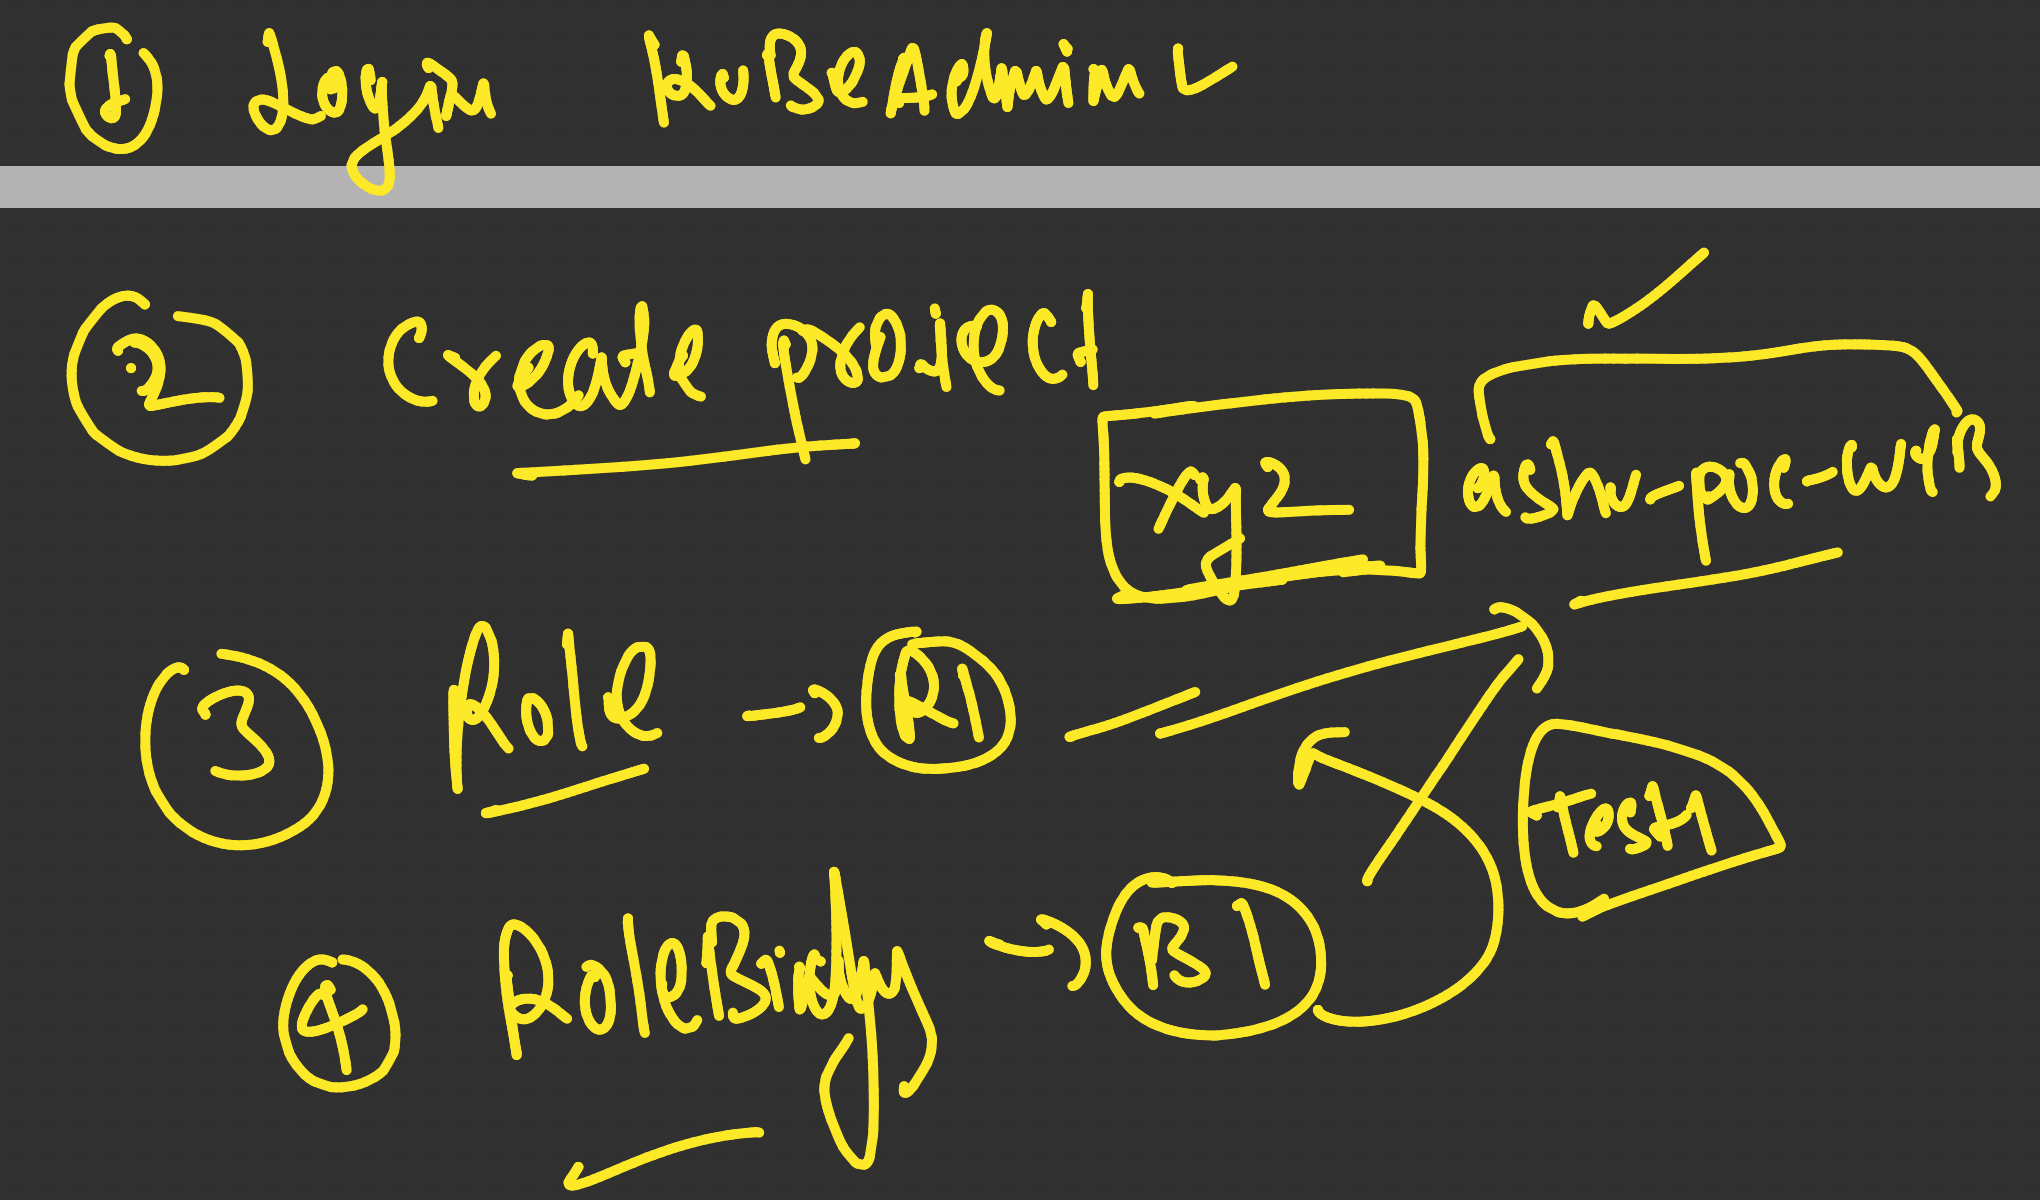 1 Login KuBeAdmin
2 Create project
xyz ashu-poc-
3 Role → R1
Test1
4 RoleBinding → B1